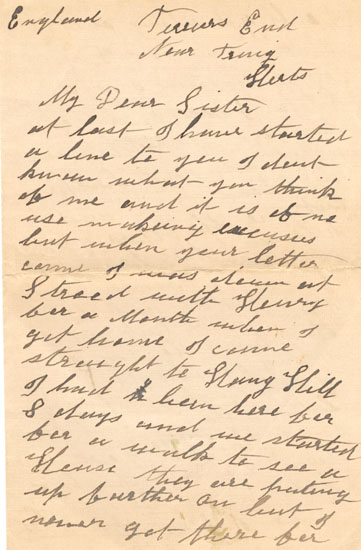 England Tiners End
Near Tring
Herts
My Dear Sister
at last I have started
a line to you I dont
know what you think
of me and it is of no
use making excuses
but when your letter
come I was down at
Strood with Henry
for a Month when I
got home I come
straught to Hang Hill
I had been here for
3 days and we started
for a walk to see a
House they are puting
up further on but I
never got there for